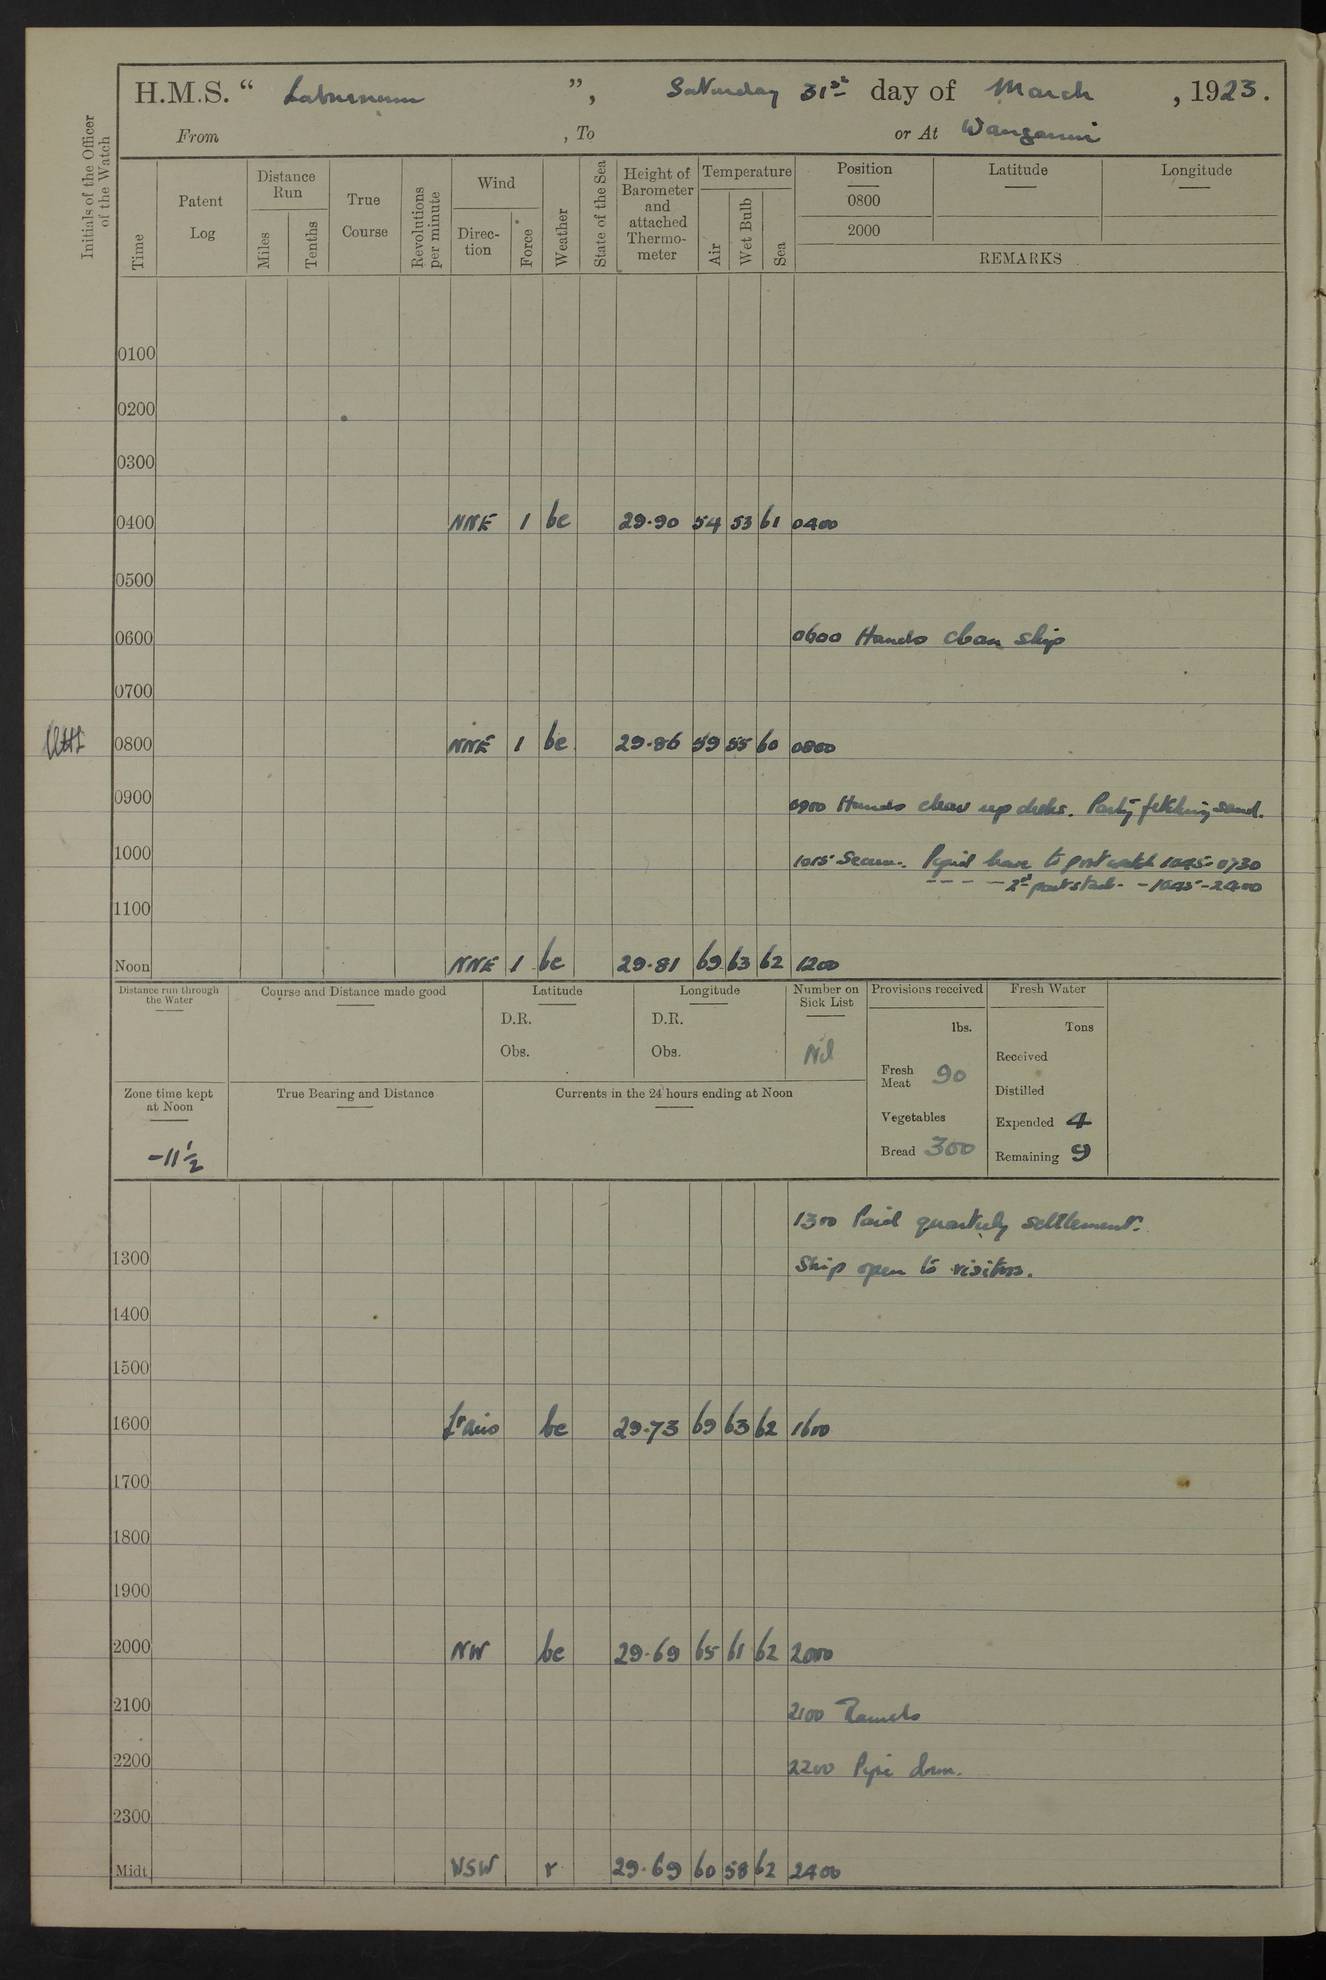 H.M.S. “ Laburnum ”, Saturday 31st day of March, 1923.
From , To or At Wanganui
Initials of the Officer of the Watch
Time
Patent Log
Distance Run
Miles
Tenths
True Course
Revolutions per minute
Wind
Direction
Force
Weather
State of the Sea
Height of Barometer and attached Thermometer
Temperature
Air
Wet Bulb
Sea
Position
0800
2000
Latitude
Longitude
REMARKS
0100
0200
0300
0400 NNE 1 bc 29.90 54 53 61 0400
0500
0600 0600 Hands clean ship
0700
0800 NNE 1 bc 29.86 59 55 60 0800
0900 0900 Hands clear up decks. Party fetching sand.
1000 1015 Secure. Piped leave to port watch 1045-0730
- - - - 2nd part stbd. - 1045-2400
1100
Noon NNE 1 bc 29.81 69 63 62 1200
Distance run through the Water
Course and Distance made good
Latitude
D.R.
Obs.
Longitude
D.R.
Obs.
Number on Sick List
Nil
Provisions received
lbs.
Fresh Meat 90
Vegetables
Bread 300
Fresh Water
Tons
Received
Distilled
Expended 4
Remaining 9
Zone time kept at Noon
-11½
True Bearing and Distance
Currents in the 24 hours ending at Noon
1300 Paid quarterly settlement.
1300 Ship open to visitors.
1400
1500
1600 Lt airs bc 29.73 69 63 62 1600
1700
1800
1900
2000 NW bc 29.69 65 61 62 2000
2100 2100 Rounds
2200 2200 Pipe down.
2300
Midt. WSW r 29.69 60 58 62 2400